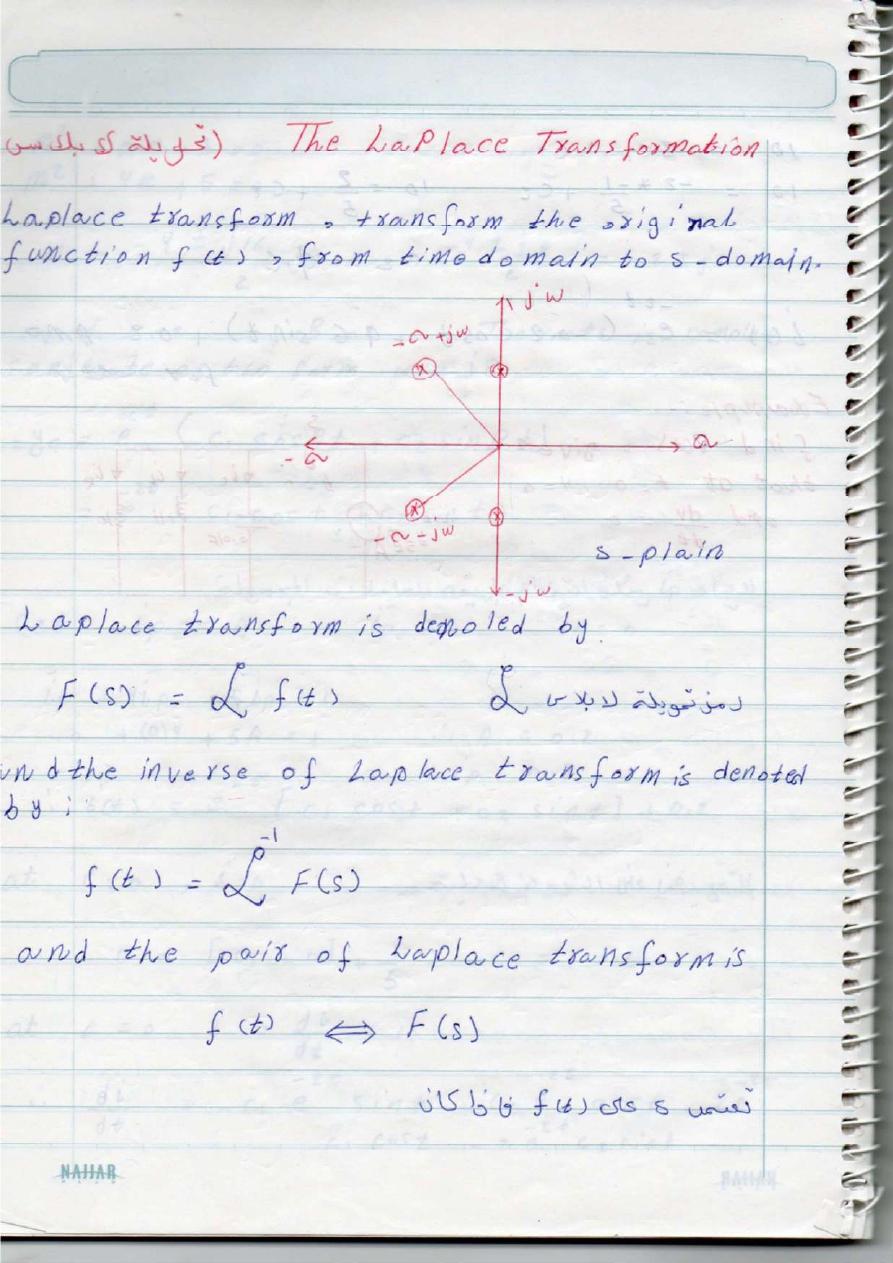 The LaPlace Transformation (تحويلة لابلاس)
Laplace transform, transform the original
function f(t), from time domain to s-domain.
jw
-a+jw
-a
a
-a-jw
-jw
s-plain
Laplace transform is denoled by
F(S) = ℒ f(t) ℒ رمز تحويلة لابلاس
and the inverse of Laplace transform is denoted
by:
f(t) = ℒ⁻¹ F(S)
and the pair of Laplace transform is
f(t) ⇔ F(s)
تعتمد s على f(t) فاذا كان
NAJJAR